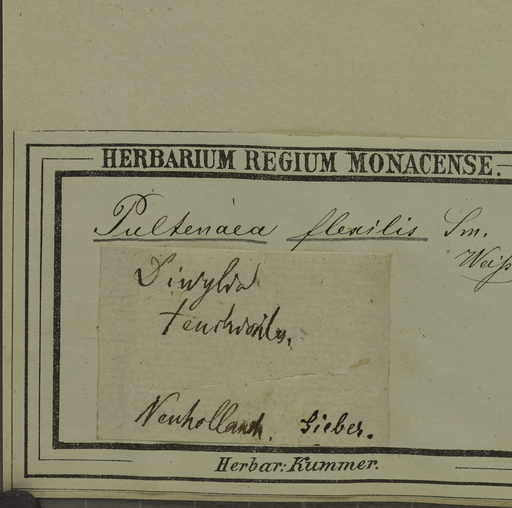 HERBARIUM REGIUM MONACENSE.
Pultenaea flexilis Sm.
Weiß
Neuholland. Sieber.
Herbar: Kummer.